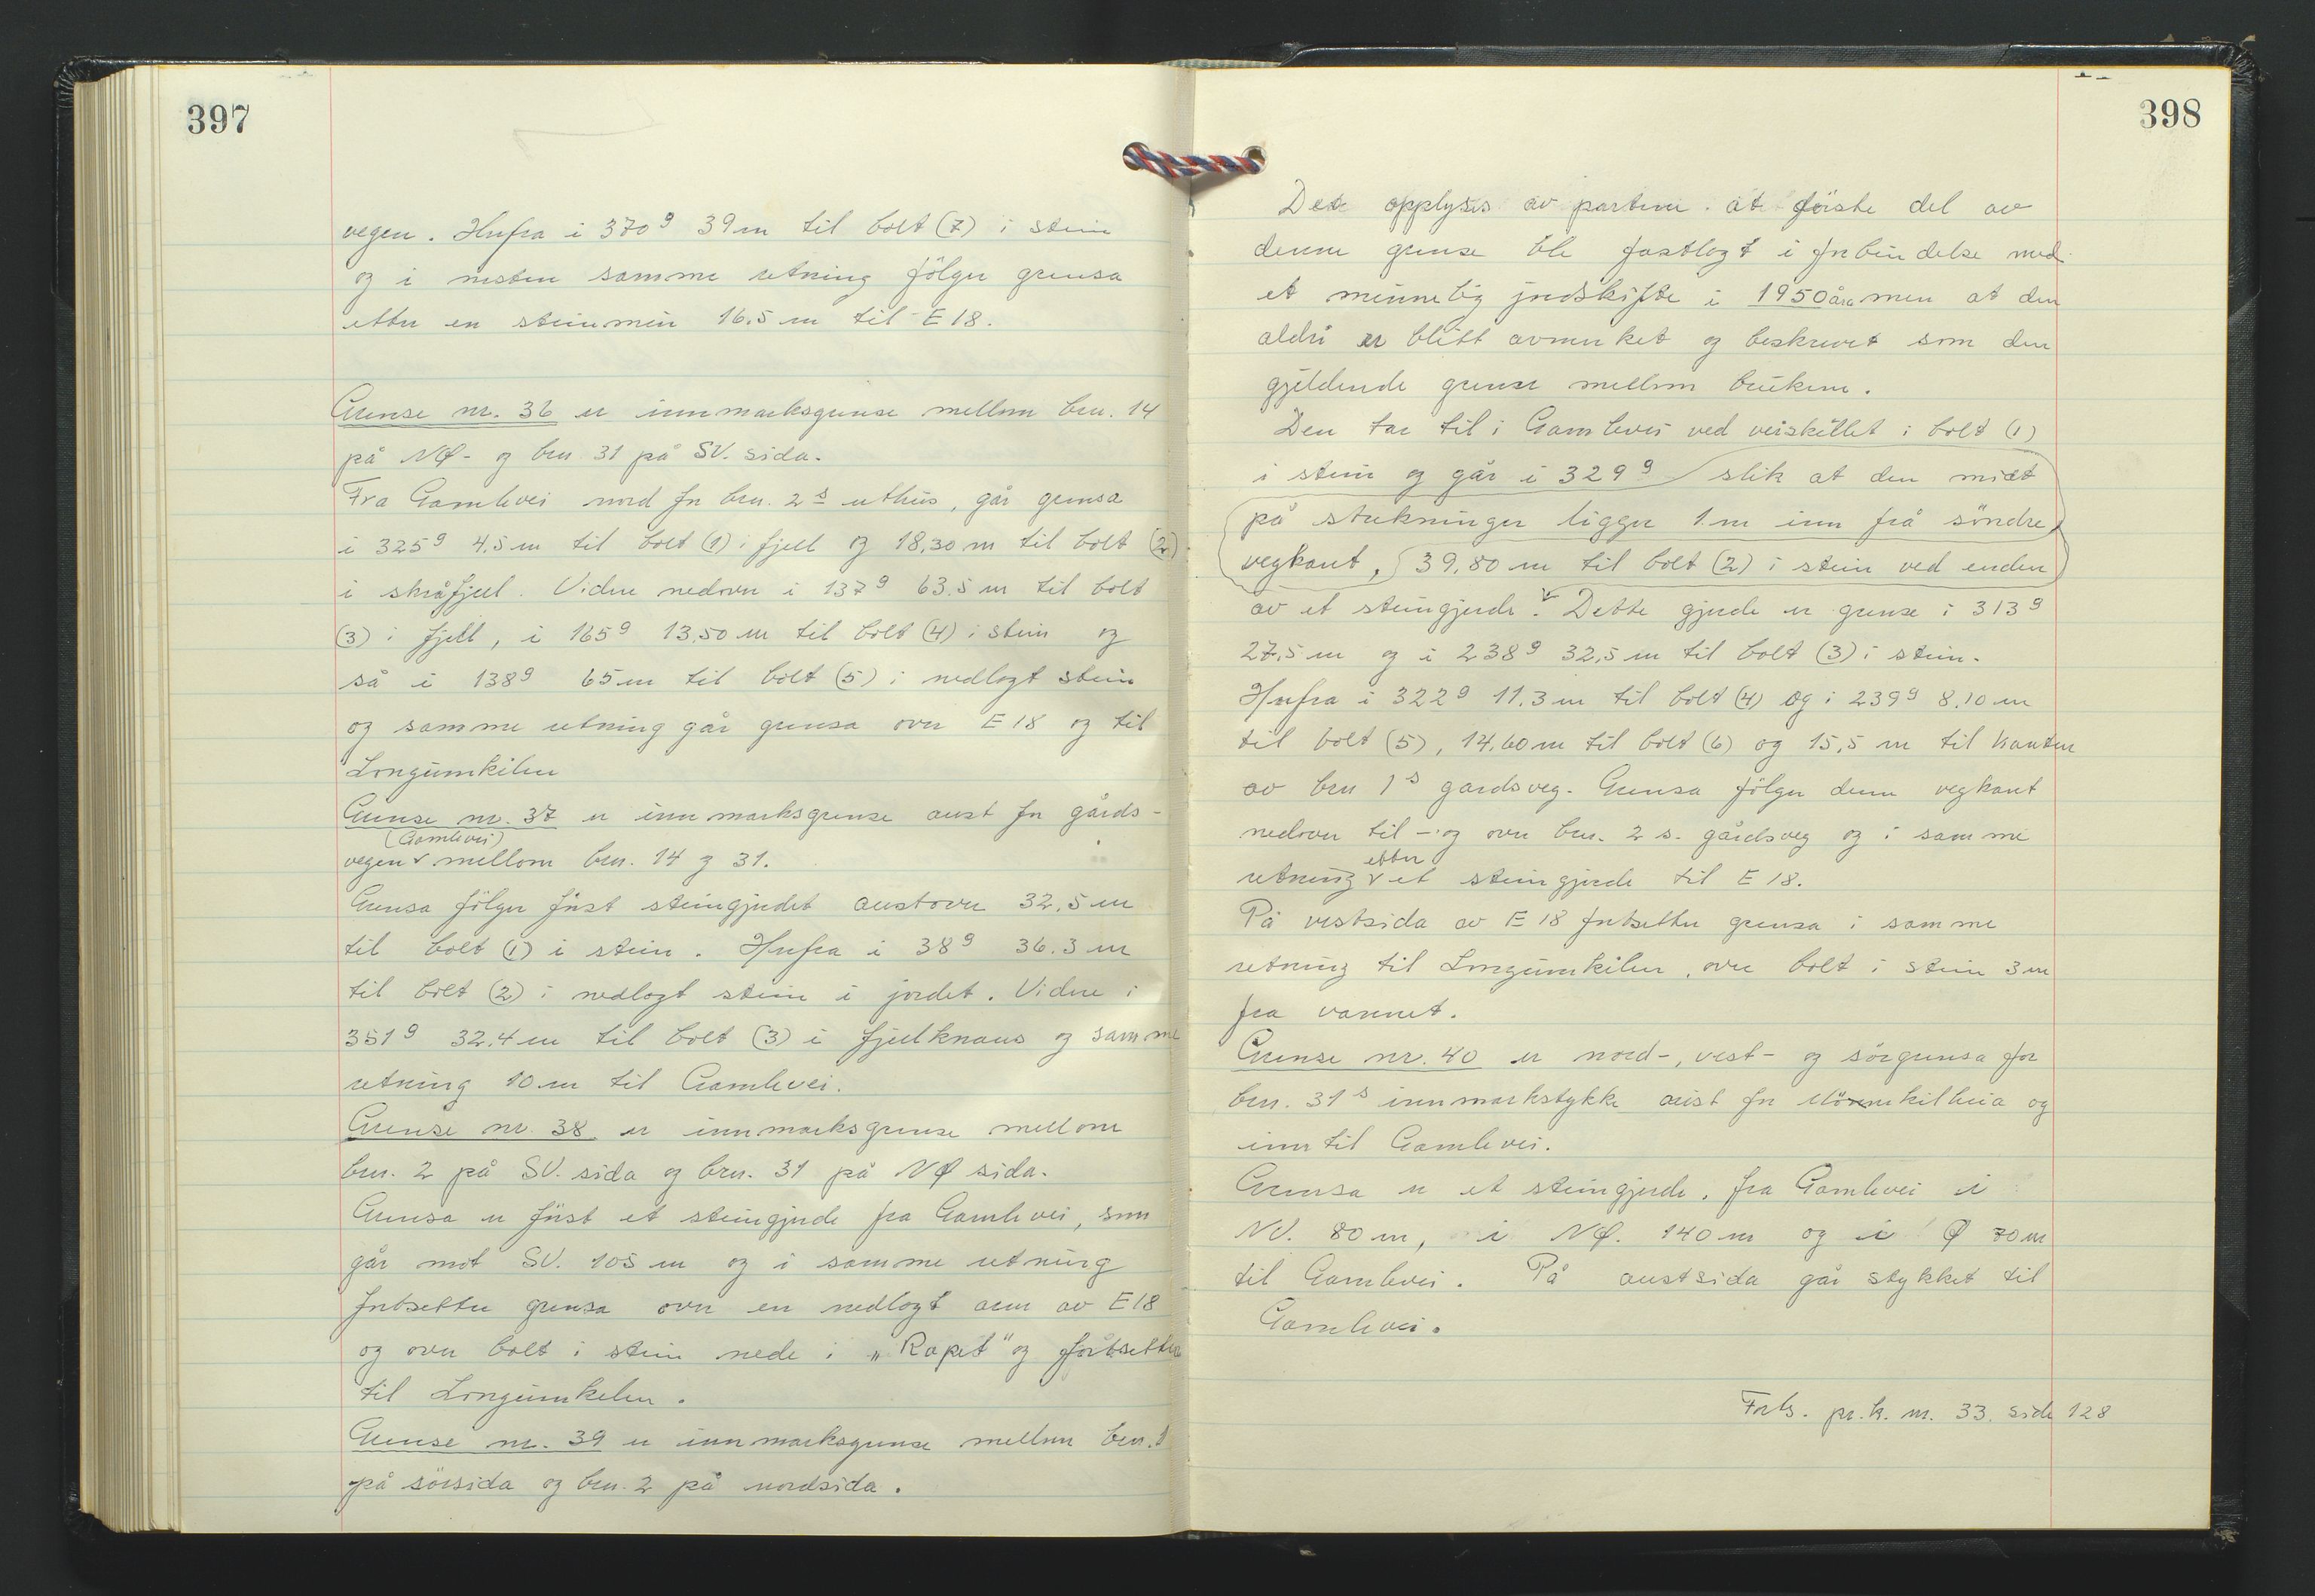 397
vegen. Herfra i 370g 39 m til bolt (7) i stein
og i nesten samme retning følger grensa
etter en steinmur 16.5 m til E 18.
Grense nr. 36 er innmarksgrense mellom brn. 14
på NØ- og brn 31 på SV. sida.
Fra Gamlevei nord for brn. 2s uthus, går grensa
i 325g 4.5 m til bolt (1) i fjell og 18.30 m til bolt (2)
i skråfjell. Videre nedover i 137g 63.5 m til bolt
(3) i fjell, i 165g 13.50 m til bolt (4) i stein og
så i 138g 65 m til bolt (5) i nedlagt stein
og samme retning går grensa over E 18 og til
Longumkilen
Grense nr. 37 er innmarksgrense aust for gårds-
(Gamlevei)
vegen v mellom brn. 14 og 31.
Grensa følger först steingjerdet austover 32.5 m
til bolt (1) i stein. Herfra i 38g 36.3 m
til bolt (2) i nedlagt stein i jordet. Videre i
351g 32.4 m til bolt (3) i fjellknaus og samme
retning 10 m til Gamlevei.
Grense nr. 38 er innmarksgrense mellom
brn. 2 på SV. sida og brn. 31 på NØ sida.
Grensa er först et steingjerde fra Gamlevei, som
går mot SV. 105 m og i samme retning
fortsetter grensa over en nedlagt arm av E 18
og over bolt i stein nede i „Rapet" og fortsetter
til Longumkelen.
Grense nr. 39 er innmarksgrense mellom brn. 1
på sörsida og brn. 2 på nordsida.
398
Det opplyses av partene at förste del av
denne grense ble fastlagt i forbindelse med
et minnelig jordskifte i 1950åra men at den
aldri er blitt avmerket og beskrevet som den
gjeldende grense mellom brukene.
Den tar til i Gamlevei ved veiskillet i bolt (1)
i stein og går i 329g slik at den midt
på strekningen ligger 1 m inn frå söndre
vegkant, 39.80 m til bolt (2) i stein ved enden
av et steingjerde. Dette gjerde er grense i 313g
27.5 m og i 238g 32.5 m til bolt (3) i stein.
Herfra i 322g 11.3 m til bolt (4) og i 239g 8.10 m
til bolt (5), 14.60 m til bolt (6) og 15.5 m til kanten
av brn 1s gardsveg. Grensa følger denne vegkant
nedover til - og over brn. 2 s. gårdsveg og i samme
etter
retning v et steingjerde til E 18.
På vestsida av E 18 fortsetter grensa i samme
retning til Longumkilen, over bolt i stein 3 m
fra vannet.
Grense nr. 40 er nord-, vest- og sörgrensa for
brn. 31s innmarkstykke aust for og
inn til Gamlevei.
Grensa er et steingjerde. fra Gamlevei i
NV. 80 m, i NØ. 140 m og i Ø 70 m
til Gamlevei. På austsida går stykket til
Gamlevei.
Forts. pr.k. nr. 33. side 128